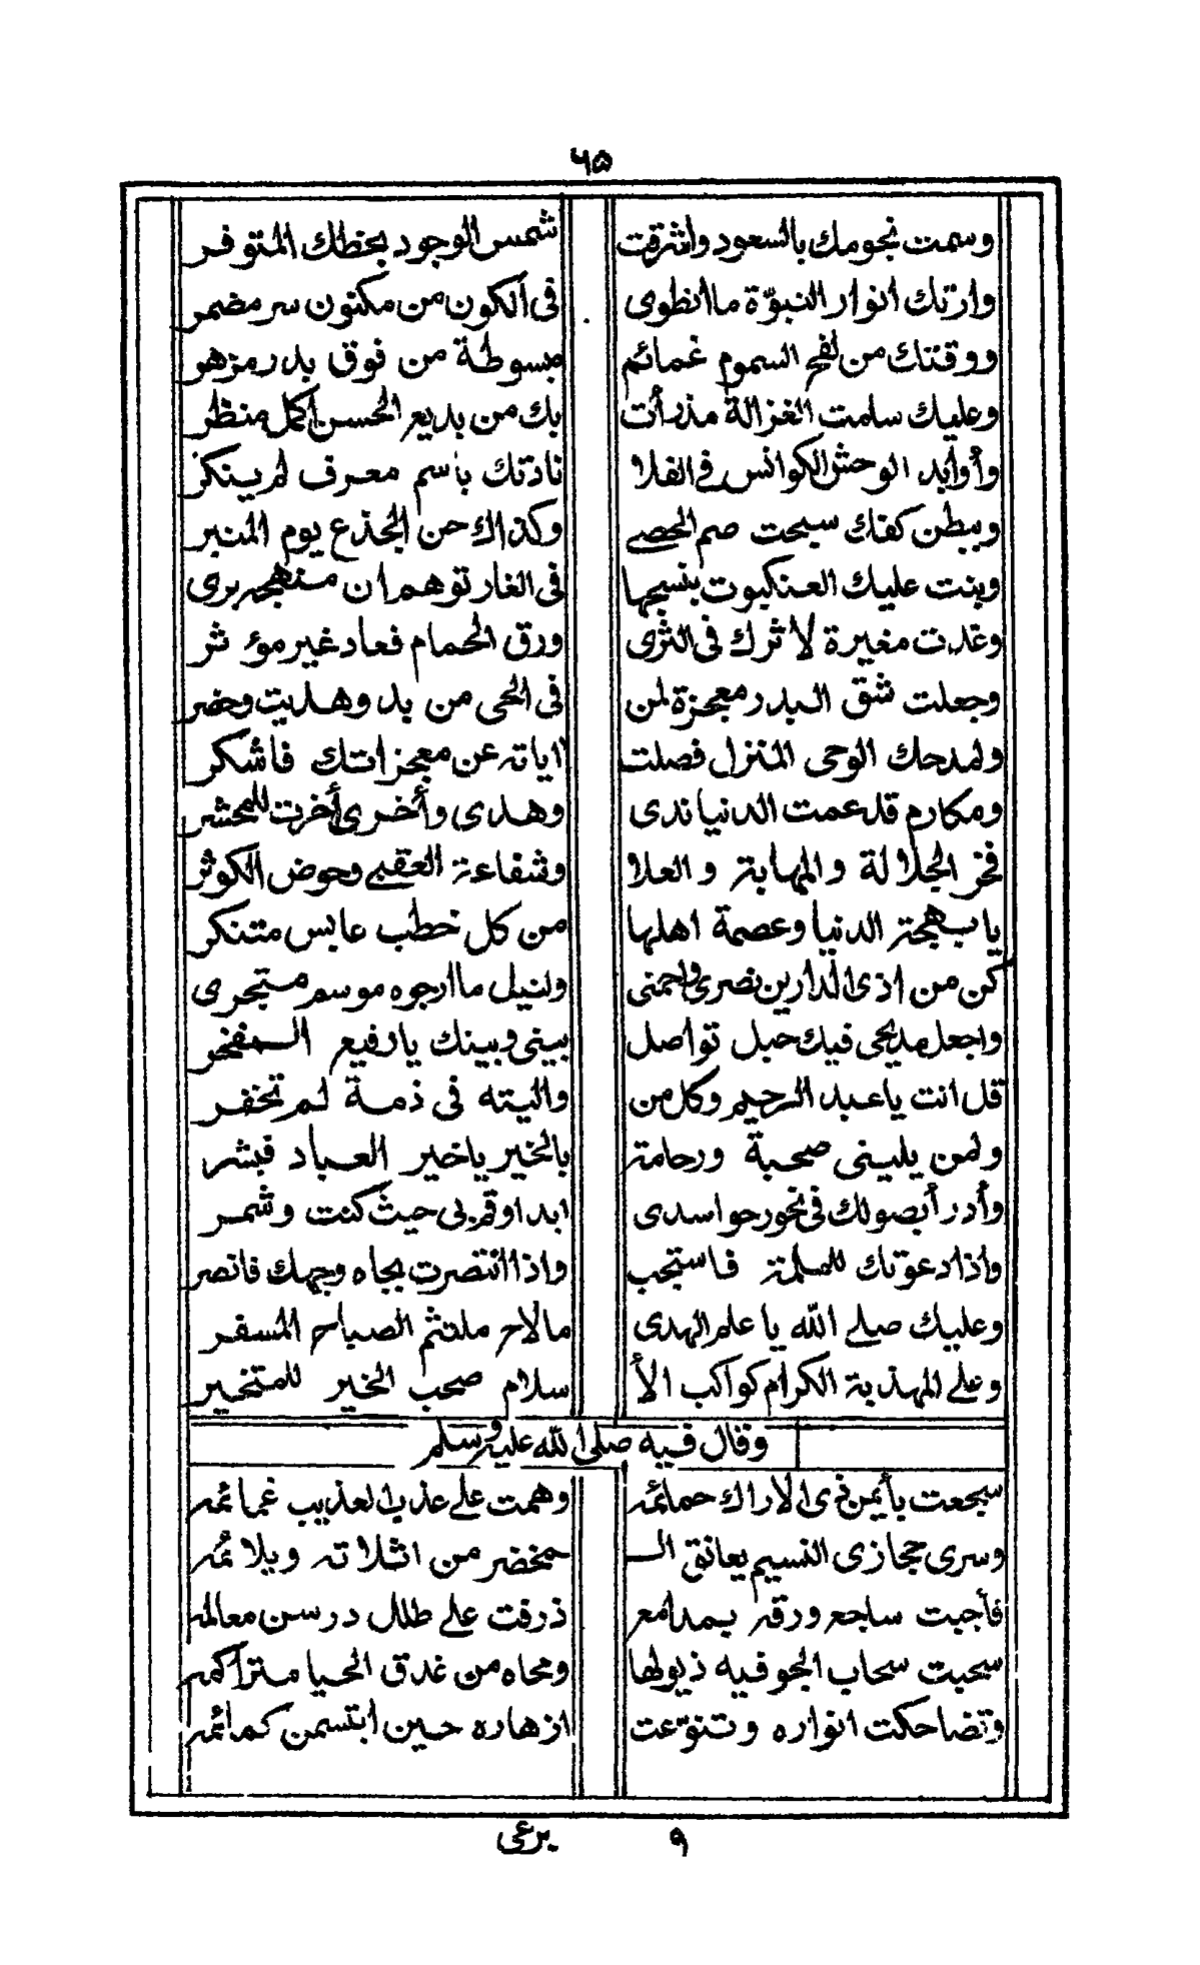 ٦٥
وسمت نجومك بالسعود واشرقت شمس الوجود بحظك المتوفر
وارتك انوار النبوّة ما انطوى فى الكون من مكنون سر مضمر
ووقتك من لفح السموم غمائم مبسوطة من فوق بدر مزهر
وعليك سلمت الغزالة مذ رأت بك من بديع الحسن اكمل منظر
وأوابد الوحش الكوانس فى الفلا نادتك باسم معرف لم ينكر
وببطن كفك سبحت صم الحصى وكذاك حن الجذع يوم المنبر
وبنت عليك العنكبوت بنسجها فى الغار توهم ان منهجه برى
وغدت مغيرة لاثرك فى الثرى ورق الحمام فعاد غير مؤثر
وجعلت شق البدر معجزة لمن فى الحى من بدو هديت وحضر
ولمدحك الوحى المنزل فصلت اياته عن معجزاتك فاشكر
ومكارم قد عمت الدنيا ندى وهدى وأخرى أخرت للمحشر
فخر الجلالة والمهابة والعلا وشفاعة العقبى وحوض الكوثر
يا بهجة الدنيا وعصمة اهلها من كل خطب عابس متنكر
كن من اذى الدارين نصرى واحمنى ولنيل ما ارجوه موسم متجرى
واجعل مديحى فيك حبل تواصل بينى وبينك يا رفيع المفخر
قل انت يا عبد الرحيم وكل من واليته فى ذمة لم تخفر
ولمن يلينى صحبة ورحامة بالخير يا خير العباد فبشر
وأدر أبصولك فى نحور حواسدى ابدا وقم بى حيث كنت وشمر
واذا دعوتك للملمة فاستجب واذا انتصرت بجاه وجهك فانصر
وعليك صلى الله يا علم الهدى مالاح ملتثم الصباح المسفر
وعلى المهذبة الكرام كواكب الأ سلام صحب الخير للمتخير
وقال فيه صلى الله عليه وسلم
سجعت بأيمن ذى الاراك حمائمه وهمت على عذب العذيب غمائمه
وسرى حجازى النسيم يعانق الـ مخضر من اثلاته ويلائمه
فأجبت ساجع ورقه بمدامع ذرفت على طلل درسن معالمه
سحبت سحاب الجو فيه ذيولها ومحاه من غدق الحيا متراكمه
وتضاحكت انواره وتنوّعت ازهاره حين ابتسمن كمائمه
٩ برعى